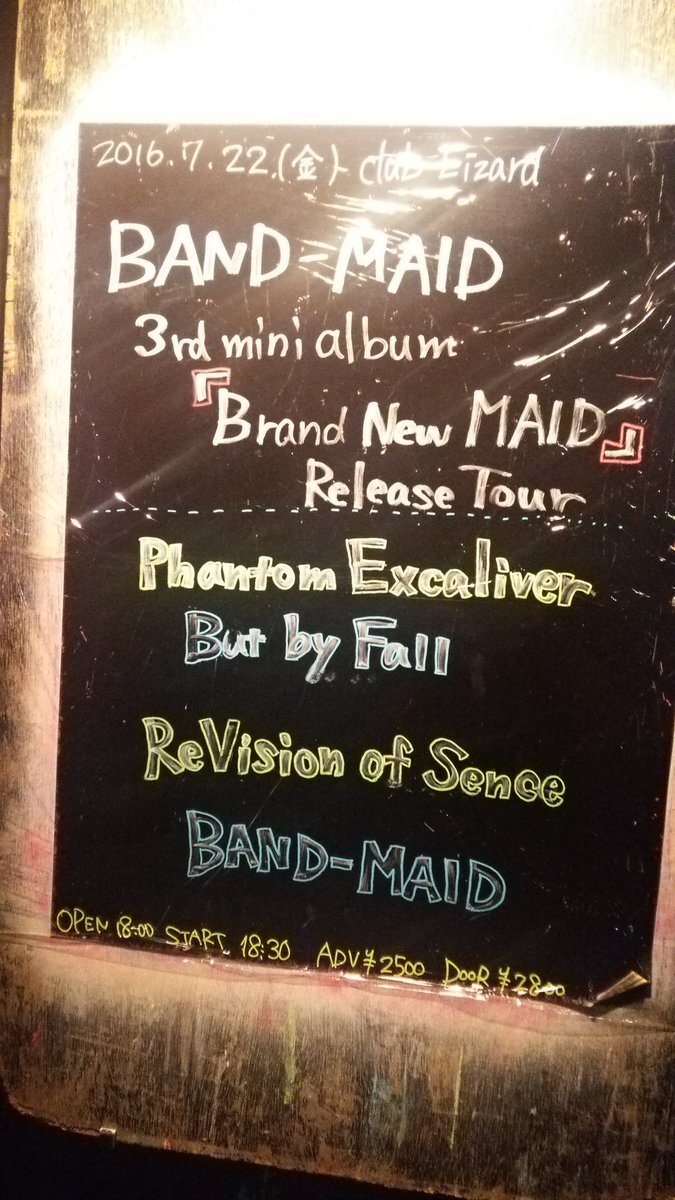 2016.7.22.(金) club Lizard
BAND-MAID
3rd mini album
『Brand New MAID』
Release Tour
Phantom Excaliver
But by Fall
ReVision of Sence
BAND-MAID
OPEN 18:00 START 18:30 ADV ¥2500 DOOR ¥2800